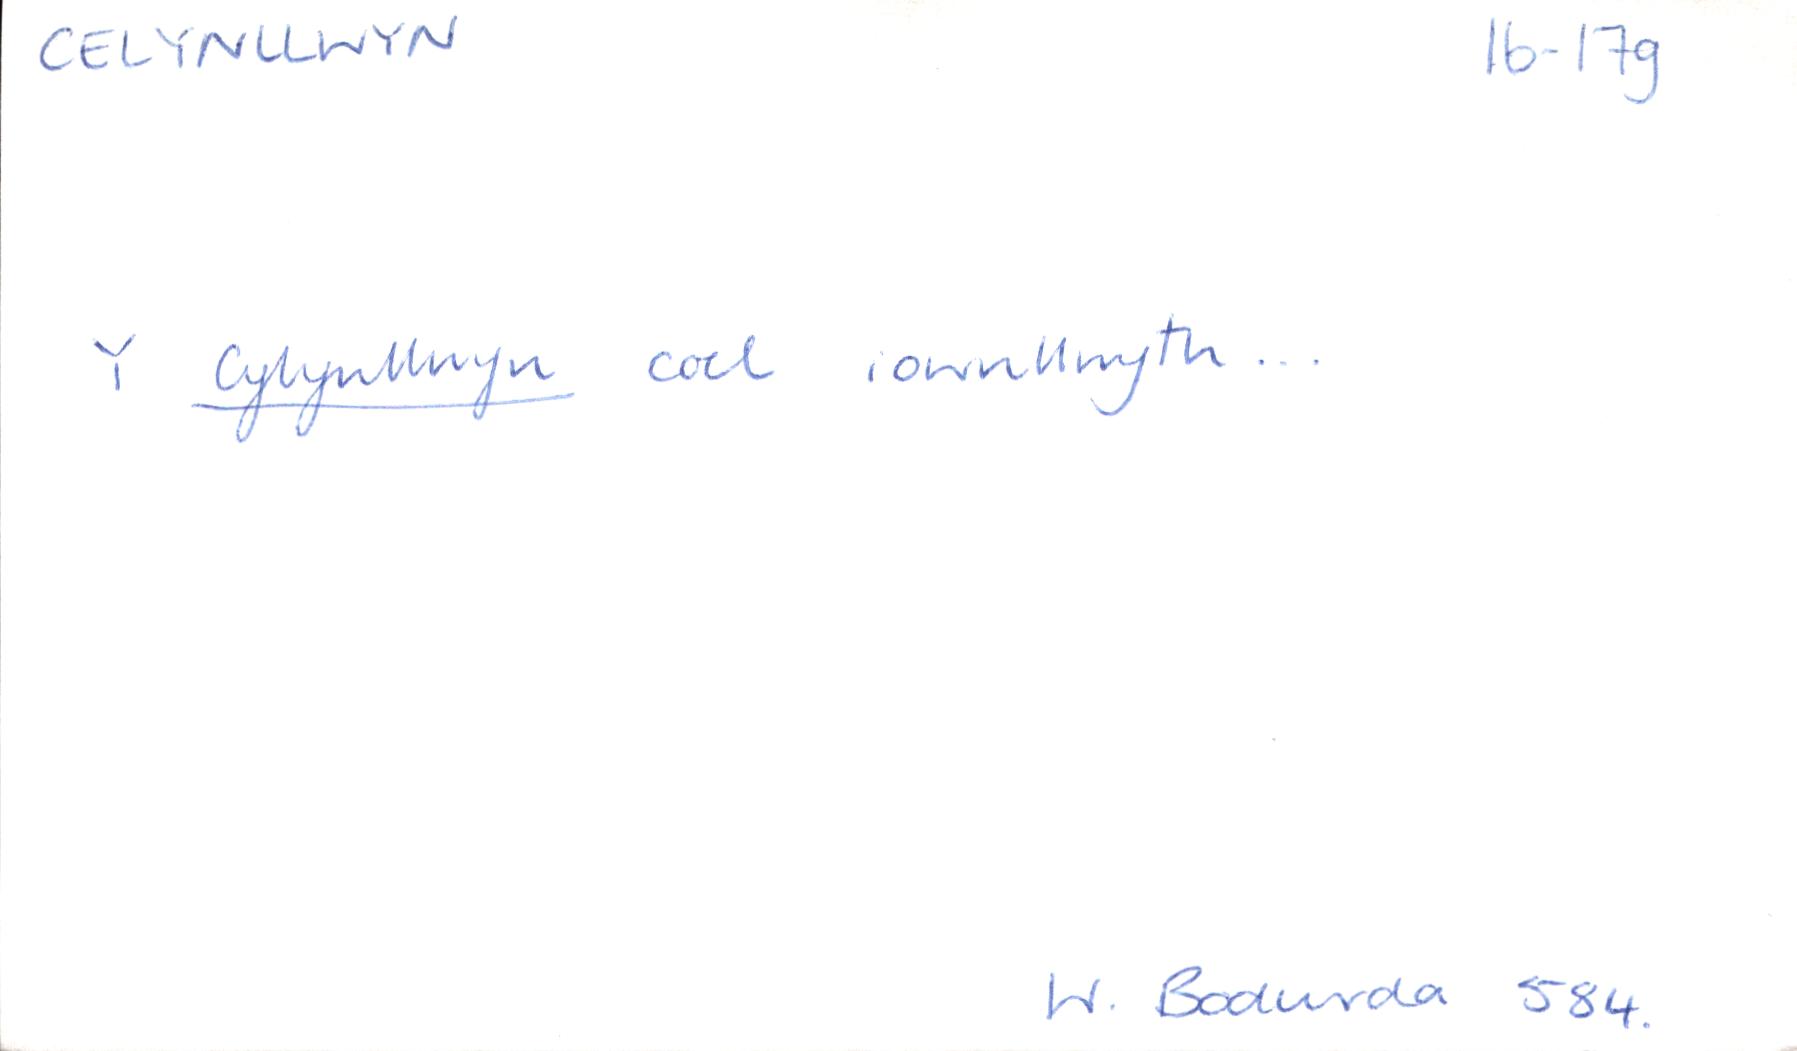 CELYNLLWYN 16-17g
Y Cylynllwyn coel iownllwyth...
W. Bodwrda 584.